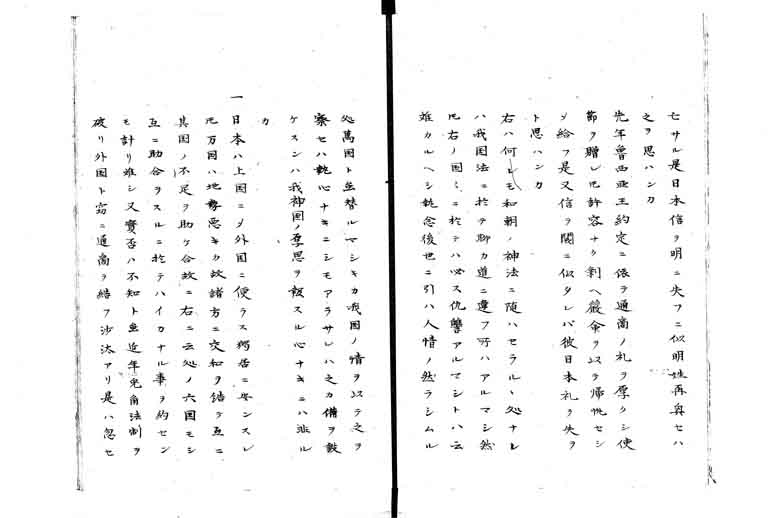 セサル是日本信ヲ明ニ失フニ似明姓再興セハ
之ヲ思ハンカ
先年魯西亜王約定ニ依テ通商ノ礼ヲ厚クシ使
節ヲ贈レ𪜈許容ナク剰ヘ厳命ヲ以テ帰帆セシ
メ給フ是又信ヲ闕ニ似タレバ彼日本礼ヲ失ヲ
ト思ハンカ
右ハ何レモ和朝ノ神法ニ随ハセラルヽ処ナレ
ハ我国法ニ於テ聊カ道ニ違フ所ハアルマシ然
𪜈右ノ国〻ニ於テハ必ス仇讐アルマシトハ云
難カルヘシ執念後世ニ引ハ人情ノ然ラシムル
処萬国ト並替ルマシキカ我国ノ情ヲ以テ之ヲ
察セハ執心ナキニシモアラサレハ之カ備ヲ設
ケスンハ我神国ノ厚恩ヲ報スル心ナキニハ非ル
カ
一日本ハ上国ニメ外国ニ便ラス獨居ニ安ンスレ
𪜈万国ハ地勢悪キカ故諸方ニ交和ヲ結テ互ニ
其国ノ不足ヲ助ケ合故ニ右ニ云処ノ六国モシ
互ニ助合ヲスルニ於テハイカナル事ヲ約セン
モ計リ難シ又實否ハ不知ト並近年兎角法制ヲ
破リ外国ト窃ニ通商ヲ結フ沙汰アリ是ハ忽セ